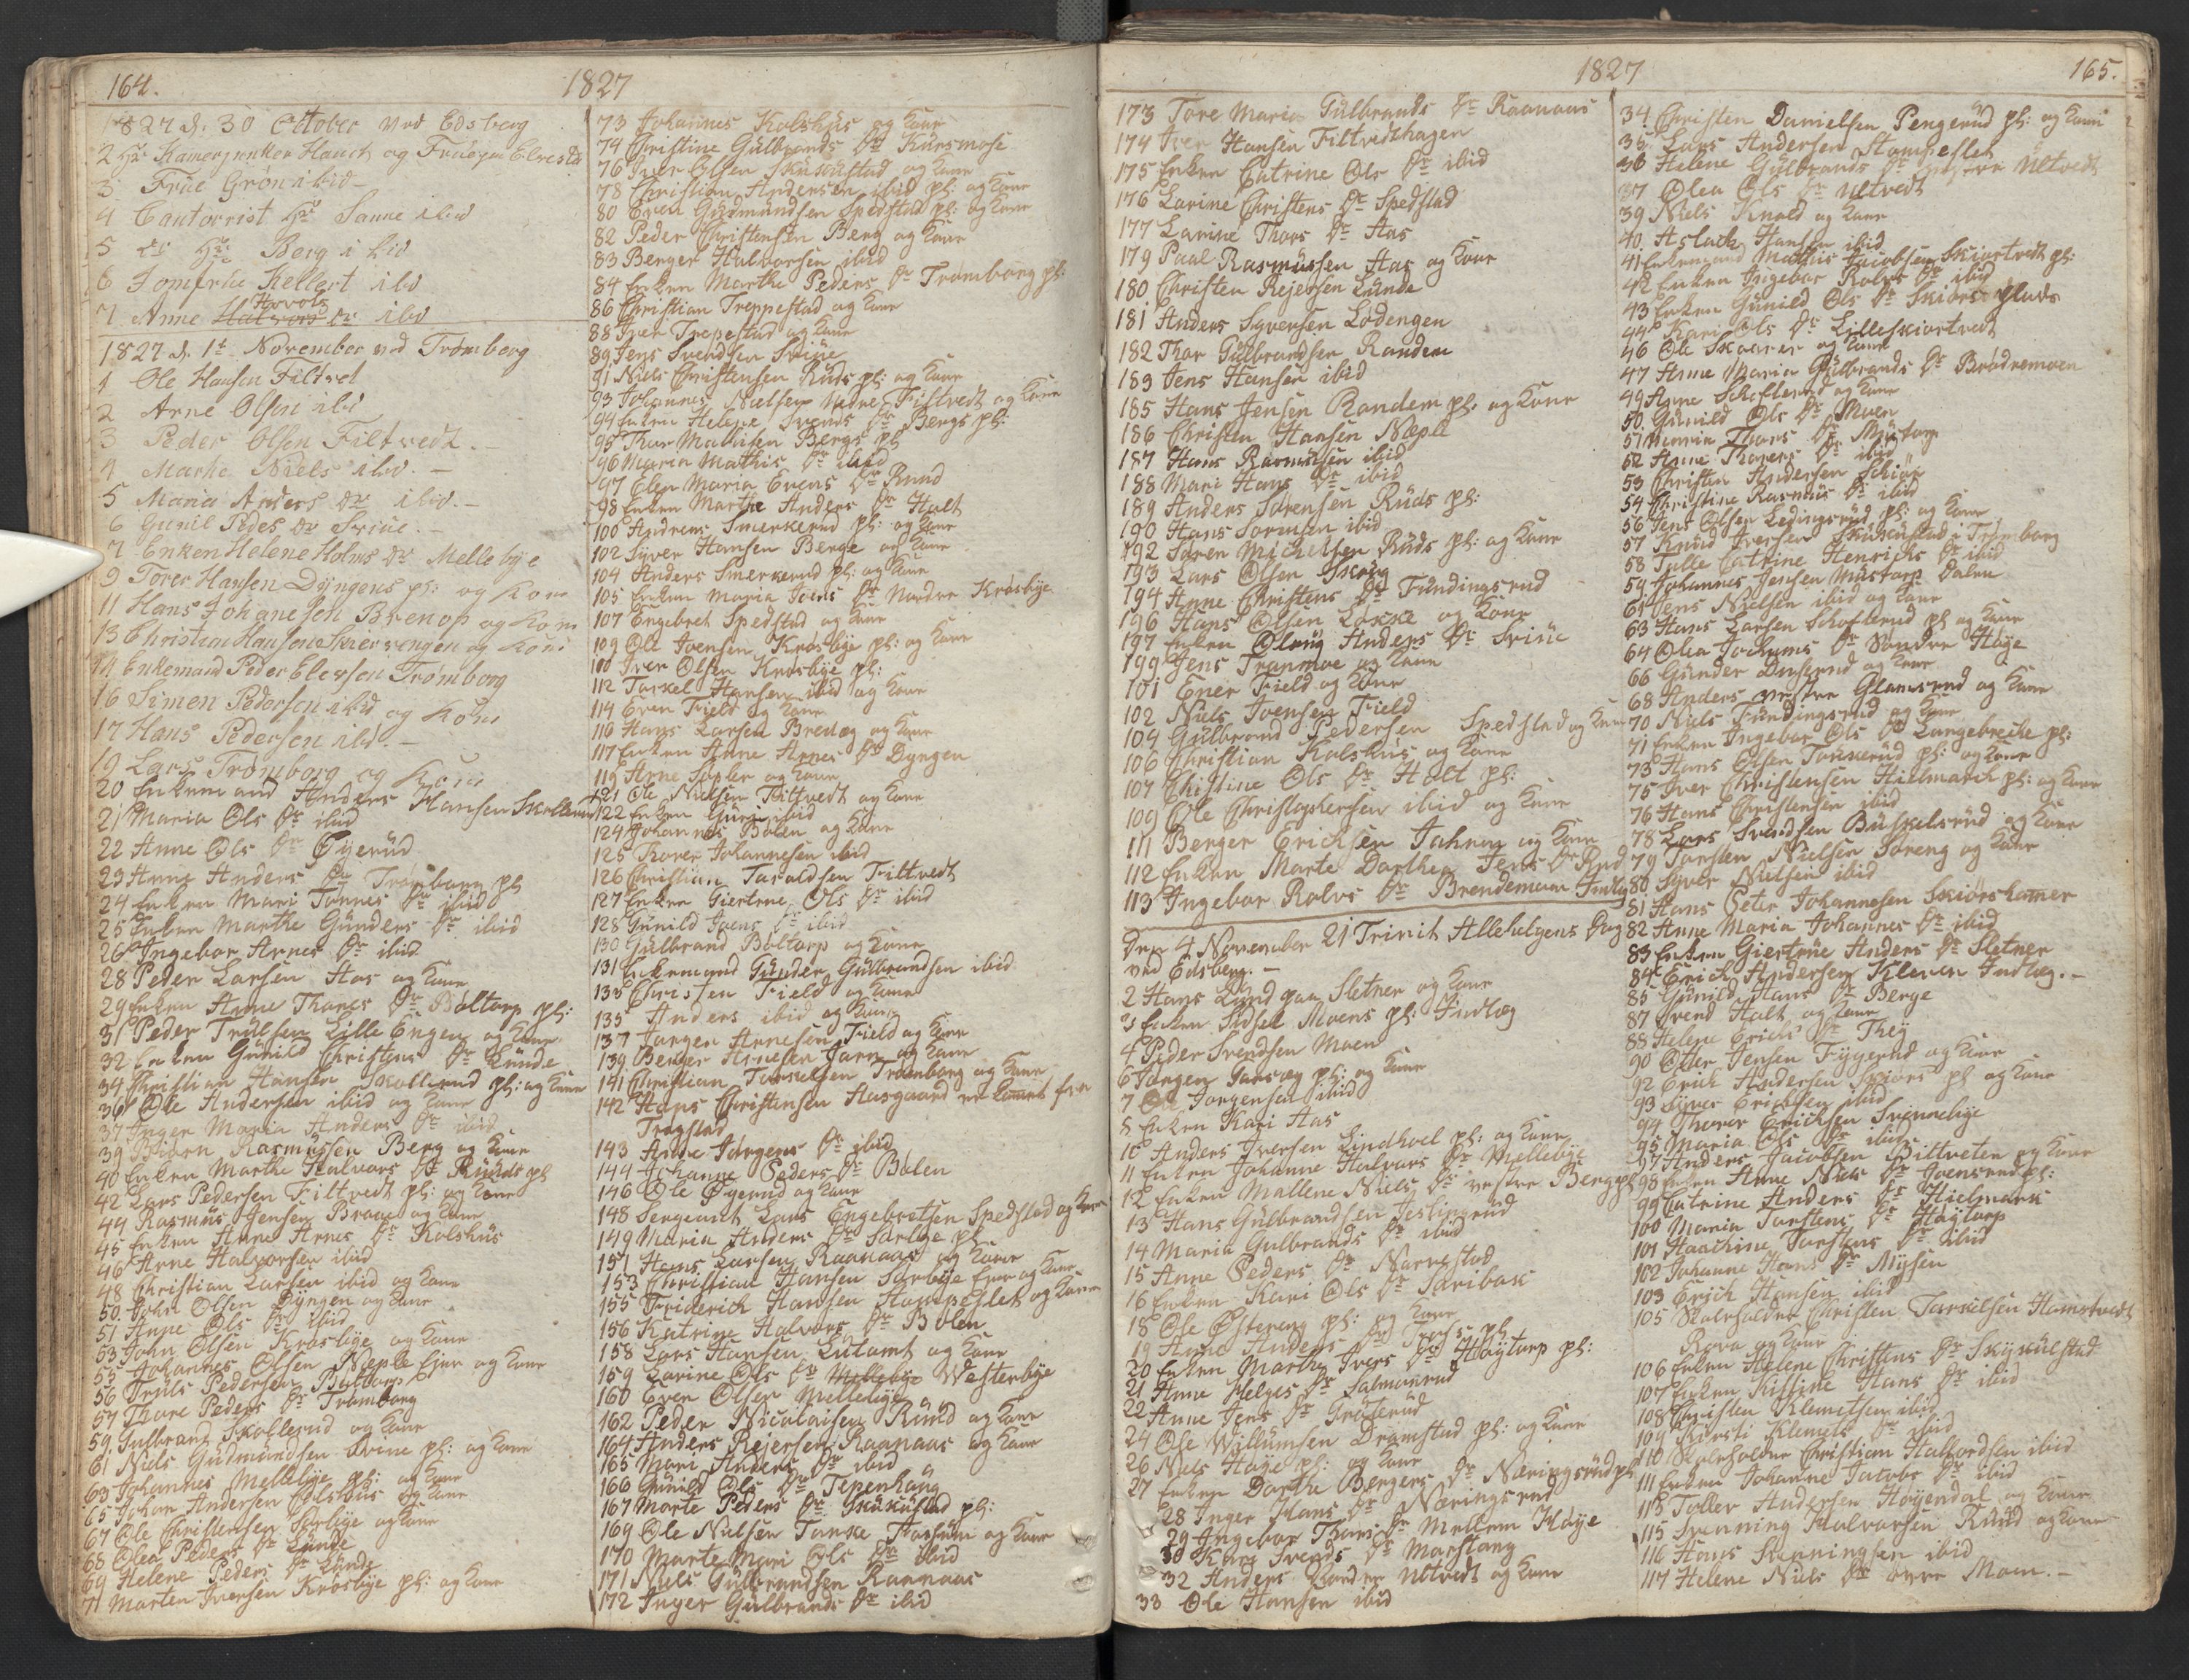 164.
1827
1827 d. 30 October ved Edsberg
2 Hr Kamerjunker Hauch og Frue
3 Frue Grøn ibid
4 Cantorrist Hr Sanne ibid
5 do Hr Berg ibid
6 Jomfrue Kellert ibd
7 Anne Arvols Dr ibd
1827 d. 1t November ved Trømborg
1 Ole Hansen Filtvet
2 Arne Olsen ibd
3 Peder Olsen Filtvedt.
4 Marthe Niels ibd.
5 Maria Anders Dr ibid.
6 Gunil Dr Sviue.
7 Enken Helene Holms Dr Mellebye
9 Torer Hansen Dyngens pl: og Kone
11 Hans Johanesen Brenop og Kone
13 Christian Hansen Skiersengen og Kone
14 Enkemand Peder Elevsen Trømborg
16 Simen Pedersen ibid og Kone
17 Hans Pedersen ibd.
19 Lars Trømborg og Kone
20 Enkemand Anders Hansen Skollerud
21 Maria Ols Dr ibid
22 Anne Ols Dr Øyerud
23 Anne Anders Dr Tromborg pl
24 Enken Mari Tønnes Dr ibid
25 Enken Marthe Gunders Dr ibid
26 Ingebor Arnes Dr ibid
28 Peder Larsen Aas og Kone
29 Enken Anne Thores Dr Boltorp pl:
31 Peder Trulsen Lille Engen og Kone
32 Enken Gunild Christens Dr Lunde
34 Christian Hansen Skollerud pl: og Kone
36 Ole Andersen ibid og Kone
37 Inger Maria Anders Dr ibid
39 Biørn Rasmussen Berg og Kone
40 Enken Marthe Halvors Dr Ruuds pl
42 Lars Pedersen Filtvedt pl: og Kone
44 Rasmus Jensen Braae og Kone
45 Enken Anne Arnes Dr Kolshus
46 Arne Halvorsen ibid
48 Christian Larsen ibid og Kone
50 John Olsen Dyngen og Kone
51 Anne Ols Dr ibid
53 John Olsen Krosbye og Kone
55 Johannes Olsen Neple Eier og Kone
56 Truls Pedersen Boltorp
57 Thore Peders Dr Tromborg
59 Gulbrand Skollerud og Kone
61 Niels Gudmundsen Sviue pl: og Kone
63 Johannes Mellebye pl: og Kone
65 Johan Andersen Kolshus og Kone
67 Ole Christensen Sorbye og Kone
68 Olea Peders Dr Lunde
69 Helene Peders Dr Lunde
71 Morten Iversen Krosbye pl: og Kone
73 Johannes Kolshus og Kone
74 Christine Gulbrands Dr Kursmose
76 Iver Olsen Skukustad og Kone
78 Christian Andersen ibid pl: og Kone
80 Even Gudmundsen Spedstad pl: og Kone
82 Peder Christensen Berg og Kone
83 Berger Halvorsen ibid
84 Enken Marthe Peders Dr Trømborg pl:
86 Christian Treppestad og Kone
88 Iver Trepestad og Kone
89 Jens Svendsen Sviue
91 Niels Christensen Ruds pl: og Kone
93 Johannes Nielsen Nedre Filtvedt og Kone
94 Enken Helene Svends Dr Bergs pl:
95 Thor Mathisen Bergs pl
96 Maren Mathis Dr ibid
97 Elen Maria Evens Dr Ruud
98 Enken Marthe Anders Dr Holt
100 Andreas Smerkerud pl: og Kone
102 Syver Hansen Berge og Kone
104 Anders Smerkerud pl: og Kone
105 Enken Maria Joens Dr Nordre Krosbye
107 Engebret Spedstad og Kone
109 Ole Joensen Krosbye pl: og Kone
110 Iver Olsen Krosbye pl:
112 Torkel Hansen ibid og Kone
114 Even Field og Kone
116 Hans Larsen Bredeg og Kone
117 Enken Anne Arnes Dr Dyngen
119 Arne Sæler og Kone
121 Ole Nielsen Filtvedt og Kone
122 Enken Guro ibid
124 Johannes Bølen og Kone
125 Thorer Johannesen ibid
126 Christian Taraldsen Filtvedt
127 Enken Giertrue Ols Dr ibid
128 Gunild Joens Dr ibid
130 Gulbrand Boltorp og Kone
131 Enkemand Gunder Gulbrandsen ibid
133 Christen Field og Kone
135 Anders ibid og Kone
137 Jørgen Arnesen Field og Kone
139 Berger Arnesen Jorn og Kone
141 Christian Torkelsen Tromborg og Kone
142 Hans Christensen Aasgaard er komt fra
Trøgstad
143 Anne Jørgens Dr ibid
144 Johanne Peders Dr Bølen
146 Ole Øyerud og Kone
148 Sergeant Lars Engebretsen Spedstad og Kone
149 Maria Anders Dr Sorbye pl
151 Hans Larsen Raanaas og Kone
153 Christian Hansen Sorbye Eier og Kone
155 Friderich Hansen Stampeslet og Kone
156 Katrine Halvors Dr Bølen
158 Lars Hansen Lutomt og Kone
159 Larine Ols Dr Mellebye Westerbye
160 Even Olsen Mellebye
162 Peder Nicolaisen Ruud og Kone
164 Anders Rejersen Raanaas og Kone
165 Mari Anders Dr ibid
166 Gunild Ols Dr Tipenhaug
167 Marte Peders Dr Skukustad pl:
169 Ole Nielsen Tanske Fossum og Kone
170 Marte Mari Ols Dr ibid
171 Niels Gulbrandsen Raanaas
172 Inger Gulbrands Dr ibid
1827
165.
173 Tore Maria Gulbrands Dr Raanaas
174 Iver Hansen Filtvedthagen
175 Enken Catrine Ols Dr ibid
176 Larine Christens Dr Spedstad
177 Larine Thors Dr Aas
179 Paal Rasmussen Aas og Kone
180 Christen Rejersen Lunde
181 Anders Syversen Lodengen
182 Thor Gulbrandsen Randem
183 Jens Hansen ibid
185 Hans Jensen Randem pl: og Kone
186 Christen Hansen Neple
187 Hans Rasmussen ibid
188 Mari Hans Dr ibid
189 Anders Sørensen Ruds pl:
190 Hans Sørensen ibid
192 Søren Michelsen Ruds pl: og Kone
193 Lars Olsen Skoug
194 Anne Christens Dr Fundingsrud
196 Hans Olsen Løkke og Kone
197 Enken Olaug Anders Dr Sviue
199 Jens Tranmoe og Kone
101 Ener Field og Kone
102 Niels Joensen Field
104 Gulbrand Pedersen Spedstad og Kone
106 Christian Kolshus og Kone
107 Christine Ols Dr Holt pl:
109 Ole Christophersen ibid og Kone
111 Berger Erichsen Jahren og Kone
112 Enken Marte Dorthea Jens Dr Rud
113 Ingebor Rolvs Dr Brendemoen Indlæg
Den 4 November 21 Trinit Allehelgens Dag
ved Edsberg.
2 Hans Lund paa Sletner og Kone
3 Enken Sidsel Moens pl: Indlæg
4 Peder Svendsen Moen
6 Jørgen Garseg pl: og Kone
7 Ole Jørgensen ibid
8 Enken Kari Aas
10 Anders Iversen Lindhoel pl: og Kone
11 Enken Johanne Halvors Dr Mellebye
12 Enken Mallene Niels Dr vestre Berg pl
13 Hans Gulbrandsen Jeslingrud
14 Maria Gulbrands Dr ibid
15 Anne Peders Dr Narvestad
16 Enken Kari Ols Dr Saribak
18 Ole Østereng pl: og Kone
19 Anne Anders Dr Fosse pl
20 Enken Marthe Ivers Dr Høytorp pl:
21 Anne Helges Dr Salmonrud
22 Anne Jens Dr Graaterud
24 Ole Willumsen Dramstad pl: og Kone
26 Niels Høye pl: og Kone
27 Enken Dorthe Bergers Dr Næringsrud pl
28 Inger Hans Dr Næringsrud
29 Ingebor Thors Dr Mellem Høye
30 Kari Svends Dr Morstang
32 Anders Søndre Utvedt og Kone
33 Ole Hansen ibid
34 Christen Danielsen Pengerud pl: og Kone
35 Lars Andersen Stampeslet
36 Helene Gulbrands Dr Ultvedt
37 Olea Ols Dr Ultvedt
39 Niels Knold og Kone
40 Aslach Hansen ibid
41 Enkemand Mathis Jacobsen Skiortvedt pl:
42 Enken Ingebor Rolvs Dr ibid
43 Enken Gunild Ols Dr Skiørs Plads
44 Kari Ols Dr Lilleskiortvedt
46 Ole Skaarer og Kone
47 Anne Maria Gulbrands Dr Brødremoen
49 Arne Schofterud og Kone
50 Gunild Ols Dr Moen
51 Maria Thors Dr Mustorp
52 Anne Thorers Dr ibid
53 Christen Andersen Schiør
54 Christine Rasmus Dr ibid
56 Jens Olsen Ledingsrud pl: og Kone
57 Knud Iversen Skukustad i Trømborg
58 Tulle Catrine Henrichs Dr ibid
59 Johannes Jensen Mustorp Dalen
61 Jens Nielsen ibid og Kone
63 Hans Larsen Schofterud pl og Kone
64 Olea Jochums Dr Søndre Høye
66 Gunder Dusserud og Kone
68 Anders vestre Glamsrud og Kone
70 Niels Fundingsrud og Kone
71 Enken Ingebor Ols Dr Langebrecke pl:
73 Hans Olsen Toskerud pl: og Kone
75 Iver Christensen Hielmark pl: og Kone
76 Hans Christensen ibid
78 Lars Svendsen Buskelsrud og Kone
79 Torsten Nielsen Soreng og Kone
80 Syver Nielsen ibid
81 Hans Peter Johannesen Skiørshamer
82 Anne Maria Johannes Dr ibid
83 Enken Giertrue Anders Dr Sletner
84 Erich Andersen Kleven Indlæg.
85 Gunild Hans Dr Berge
87 Svend Holt og Kone
88 Helene Erichs Dr They
90 Oller Jensen Fyggerud og Kone
92 Erich Andersen Skiørs pl og Kone
93 Syver Erichsen ibid
94 Thorer Erichsen Svennebye
95 Maria Ols Dr ibid
97 Anders Jacobsen Bilitveten og Kone
98 Enken Anne Niels Dr Joensrud pl:
99 Catrine Anders Dr Hielmark
100 Maria Torstens Dr Høytorp
101 Haachine Torstens Dr ibid
102 Johanne Hans Dr Mysen
103 Erich Hansen ibid
105 Skoleholder Christen Torkelsen Homstvedt
Rova og Kone
106 Enken Helene Christens Dr Skykuelstad
107 Enken Hans Dr ibid
108 Christen Klemetsen ibid
109 Kirsti Klemets Dr ibid
110 Skoleholder Christian Halvordsen ibid
111 Enken Johanne Jacobs Dr ibid
113 Toller Andersen Høyendal og Kone
115 Svenning Halvorsen Ruud og Kone
116 Hans Svenningsen ibid
117 Helene Niels Dr øvre Moen.